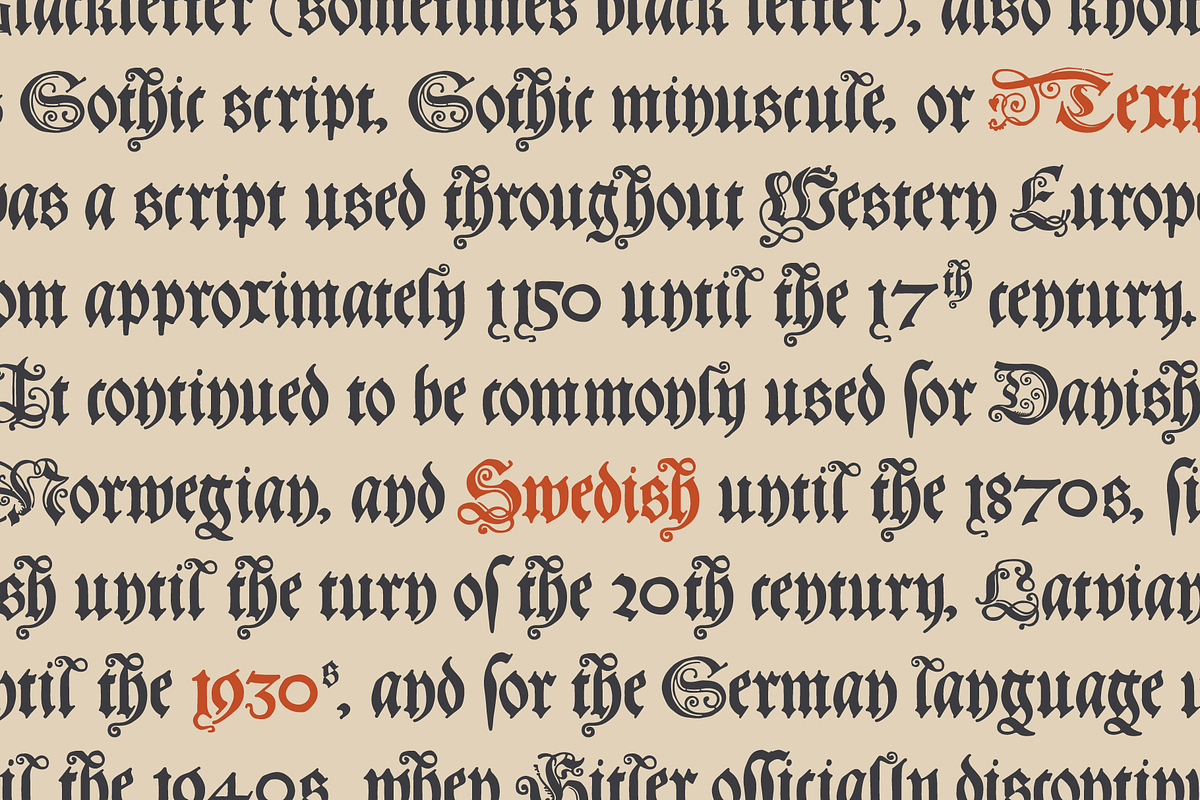 Blackletter (sometimes black letter), also know
s Gothic script, Gothic minuscule, or Textu
was a script used throughout Western Europe
om approximately 1150 until the 17th century.
It continued to be commonly used for Danish
Norwegian, and Swedish until the 1870s, fi
sh until the turn of the 20th century, Latvian
ntil the 1930s, and for the German language u
il the 1940s, when Hitler officially discontinu